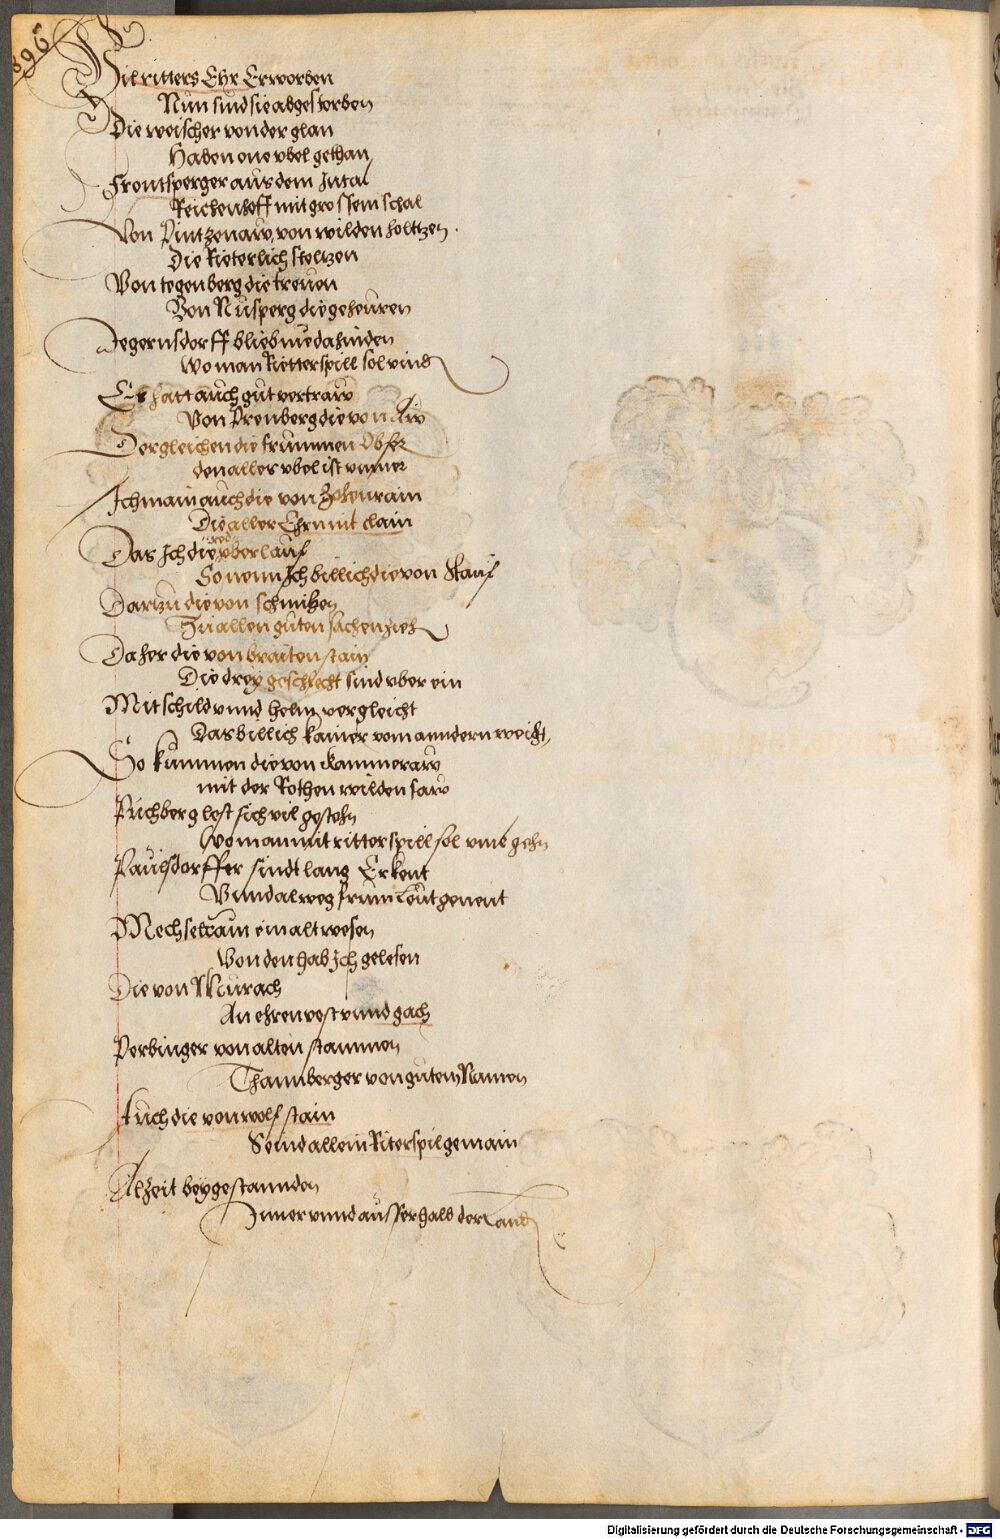 396
Vil ritters Ehr Erworben
Nun sind sie abgestorben
Die weischer von der glan
Haben one vbel gethan
Frontsperger aus dem Intal
Reichenhoff mit grossem schal
Von Pintzenaw, von wilden holtzen.
Die Rieterlich stoltzen
Von tegenberg die treuen
Von Nusperg die geheuren
Degernsdorff blieb nie dahinden
Wo man Ritterspill sol vind
Er hatt auch gut vertraw
Von Prenberg die von Aw
Dergleichen die frummen Obser
den aller vbel ist vnmer
Ich main auch die von Hohenrain
Die aller Ehr nnit clain
Das Ich die red vberlauf
So nenn Ich billich die von Stauf
Dartzu die von schmihen
Zu allen guten sachen zieh
Daher die von braitenstain
Die drey geschlecht sind vber ein
Mit schild vnnd helm vergleicht
Das billich kainer vom anndern weicht,
So kummen die von Kammeraw
mit der Rothen wilden saw
Puchberg lost sich vil gestehn
Wo man mit ritterspill sol vmb gehn
Paulsdorffer sindt lang Erkent
Vnnd alweg frum Leut genent
Mechselrain ein alt wesen
Von den hab Ich gelesen
Die von Murach
An ehren vest vnnd gach
Perbinger von alten stammen
Thannberger von gutem Namen
Auch die von wolfstain
Seind allein Riterspil gemain
Alzeit beygestannden
Inner vnnd ausserhalb der Land
Digitalisierung gefördert durch die Deutsche Forschungsgemeinschaft - DFG